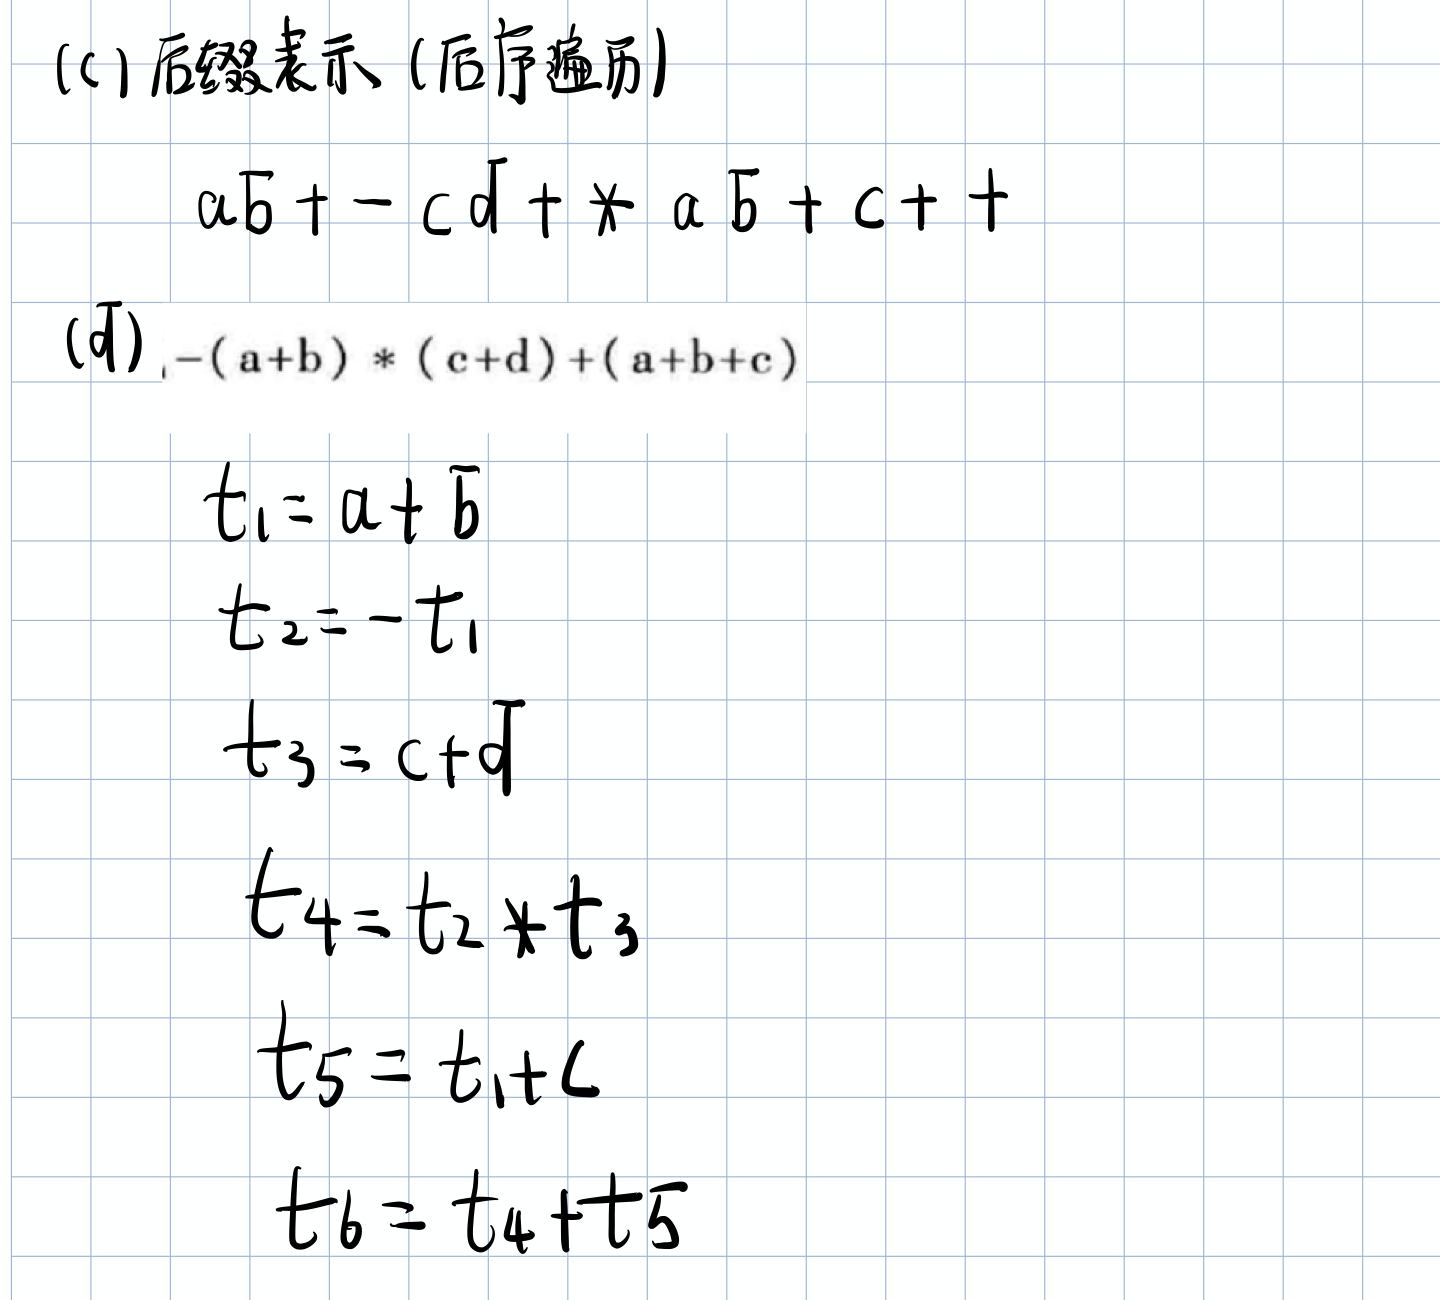 (c) 后缀表示 (后序遍历)
ab+-cd+* ab+c++
(d) -(a+b) * (c+d)+(a+b+c)
t1=a+b
t2=-t1
t3=c+d
t4=t2*t3
t5=t1+c
t6=t4+t5